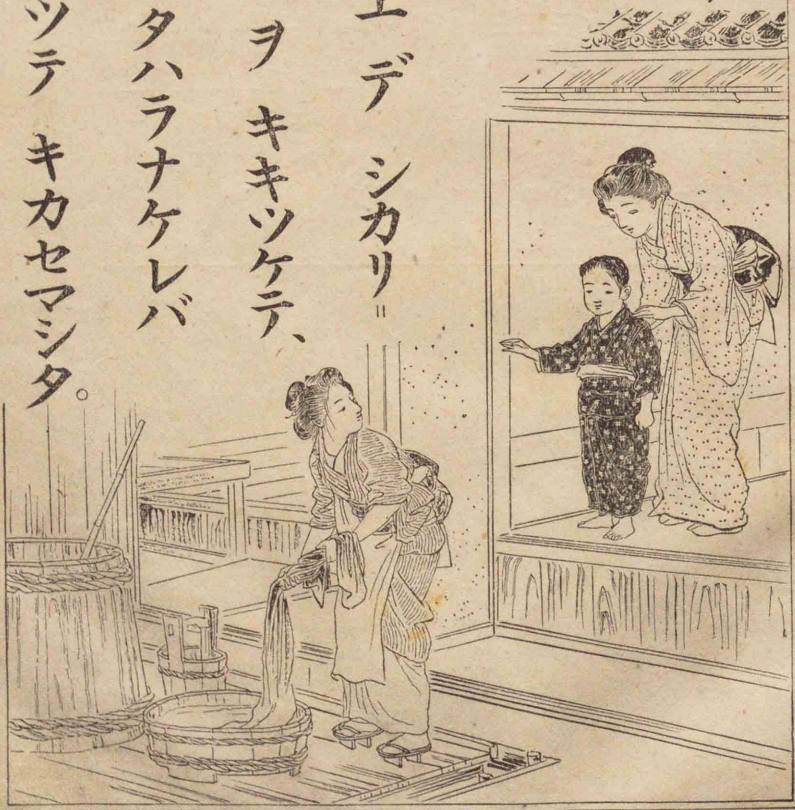 エ デ シカリ＝
ヲ キキツケテ、
タハラナケレバ
ツテ キカセマシタ。